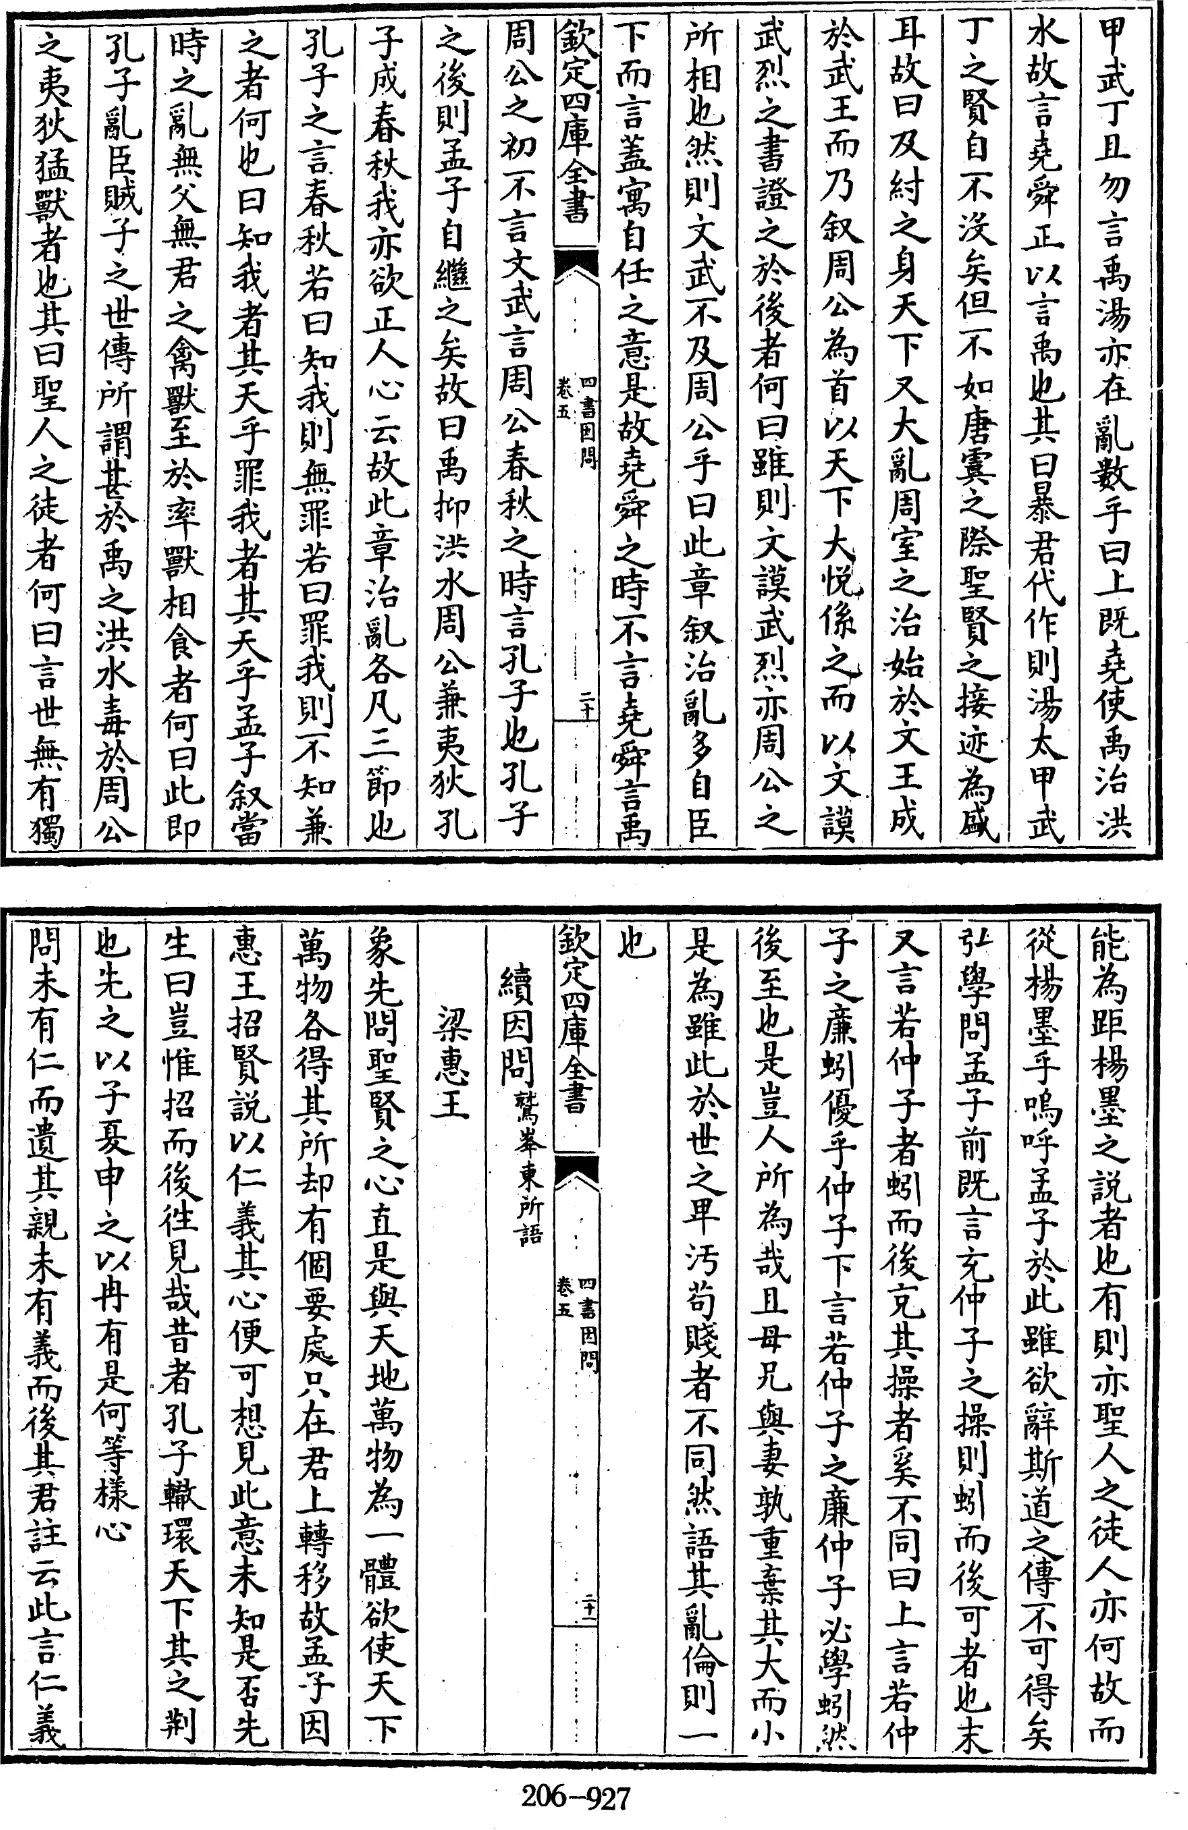 甲武丁且勿言禹湯亦在亂數乎曰上既堯使禹治洪
水故言堯舜正以言禹也其曰暴君代作則湯太甲武
丁之賢自不沒矣但不如唐虞之際聖賢之接迹為盛
耳故曰及紂之身天下又大亂周室之治始於文王成
於武王而乃叙周公為首以天下大悦係之而以文謨
武烈之書證之於後者何曰雖則文謨武烈亦周公之
所相也然則文武不及周公乎曰此章叙治亂多自臣
下而言蓋寓自任之意是故堯舜之時不言堯舜言禹
欽定四庫全書
四書因問
卷五
二十
周公之初不言文武言周公春秋之時言孔子也孔子
之後則孟子自繼之矣故曰禹抑洪水周公兼夷狄孔
子成春秋我亦欲正人心云故此章治亂各凡三節也
孔子之言春秋若曰知我則無罪若曰罪我則不知兼
之者何也曰知我者其天乎罪我者其天乎孟子叙當
時之亂無父無君之禽獸至於率獸相食者何曰此即
孔子亂臣賊子之世傳所謂甚於禹之洪水毒於周公
之夷狄猛獸者也其曰聖人之徒者何曰言世無有獨
能為距楊墨之説者也有則亦聖人之徒人亦何故而
從楊墨乎嗚呼孟子於此雖欲辭斯道之傳不可得矣
弘學問孟子前既言充仲子之操則蚓而後可者也末
又言若仲子者蚓而後充其操者奚不同曰上言若仲
子之廉蚓優乎仲子下言若仲子之廉仲子必學蚓然
後至也是豈人所為哉且母兄與妻孰重棄其大而小
是為雖此於世之卑汚苟賤者不同然語其亂倫則一
也
欽定四庫全書
四書因問
卷五
二十一
續因問鷲峯東所語
梁惠王
象先問聖賢之心直是與天地萬物為一體欲使天下
萬物各得其所却有個要處只在君上轉移故孟子因
惠王招賢説以仁義其心便可想見此意未知是否先
生曰豈惟招而後徃見哉昔者孔子轍環天下其之荆
也先之以子夏申之以冉有是何等樣心
問未有仁而遺其親未有義而後其君註云此言仁義
206-927